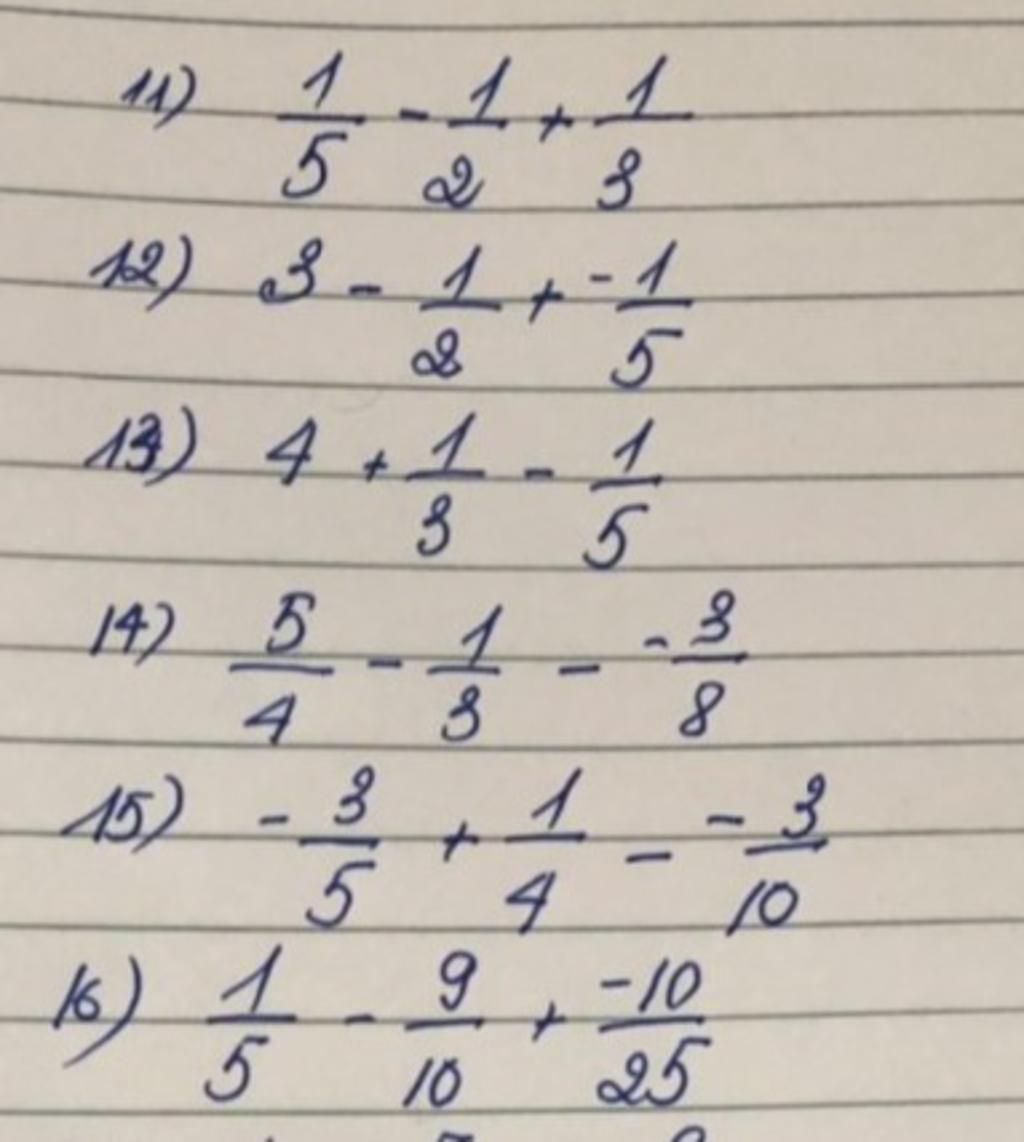 11) 1/5 - 1/2 + 1/3
12) 3 - 1/2 + -1/5
13) 4 + 1/3 - 1/5
14) 5/4 - 1/3 - -3/8
15) -3/5 + 1/4 - -3/10
16) 1/5 - 9/10 + -10/25